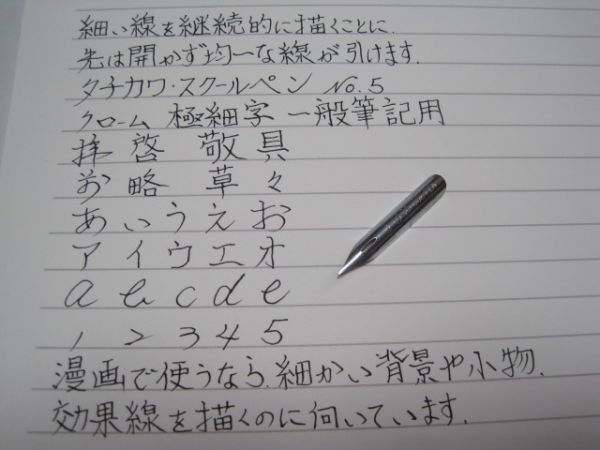 細い線を継続的に描くことに
先は開かず均一な線が引けます.
タチカワ・スクールペン No.5
クローム 極細字 一般筆記用
拝啓 敬具
前略 草々
あいうえお
アイウエオ
a b c d e
1 2 3 4 5
漫画で使うなら、細かい背景や小物.
効果線を描くのに向いています.